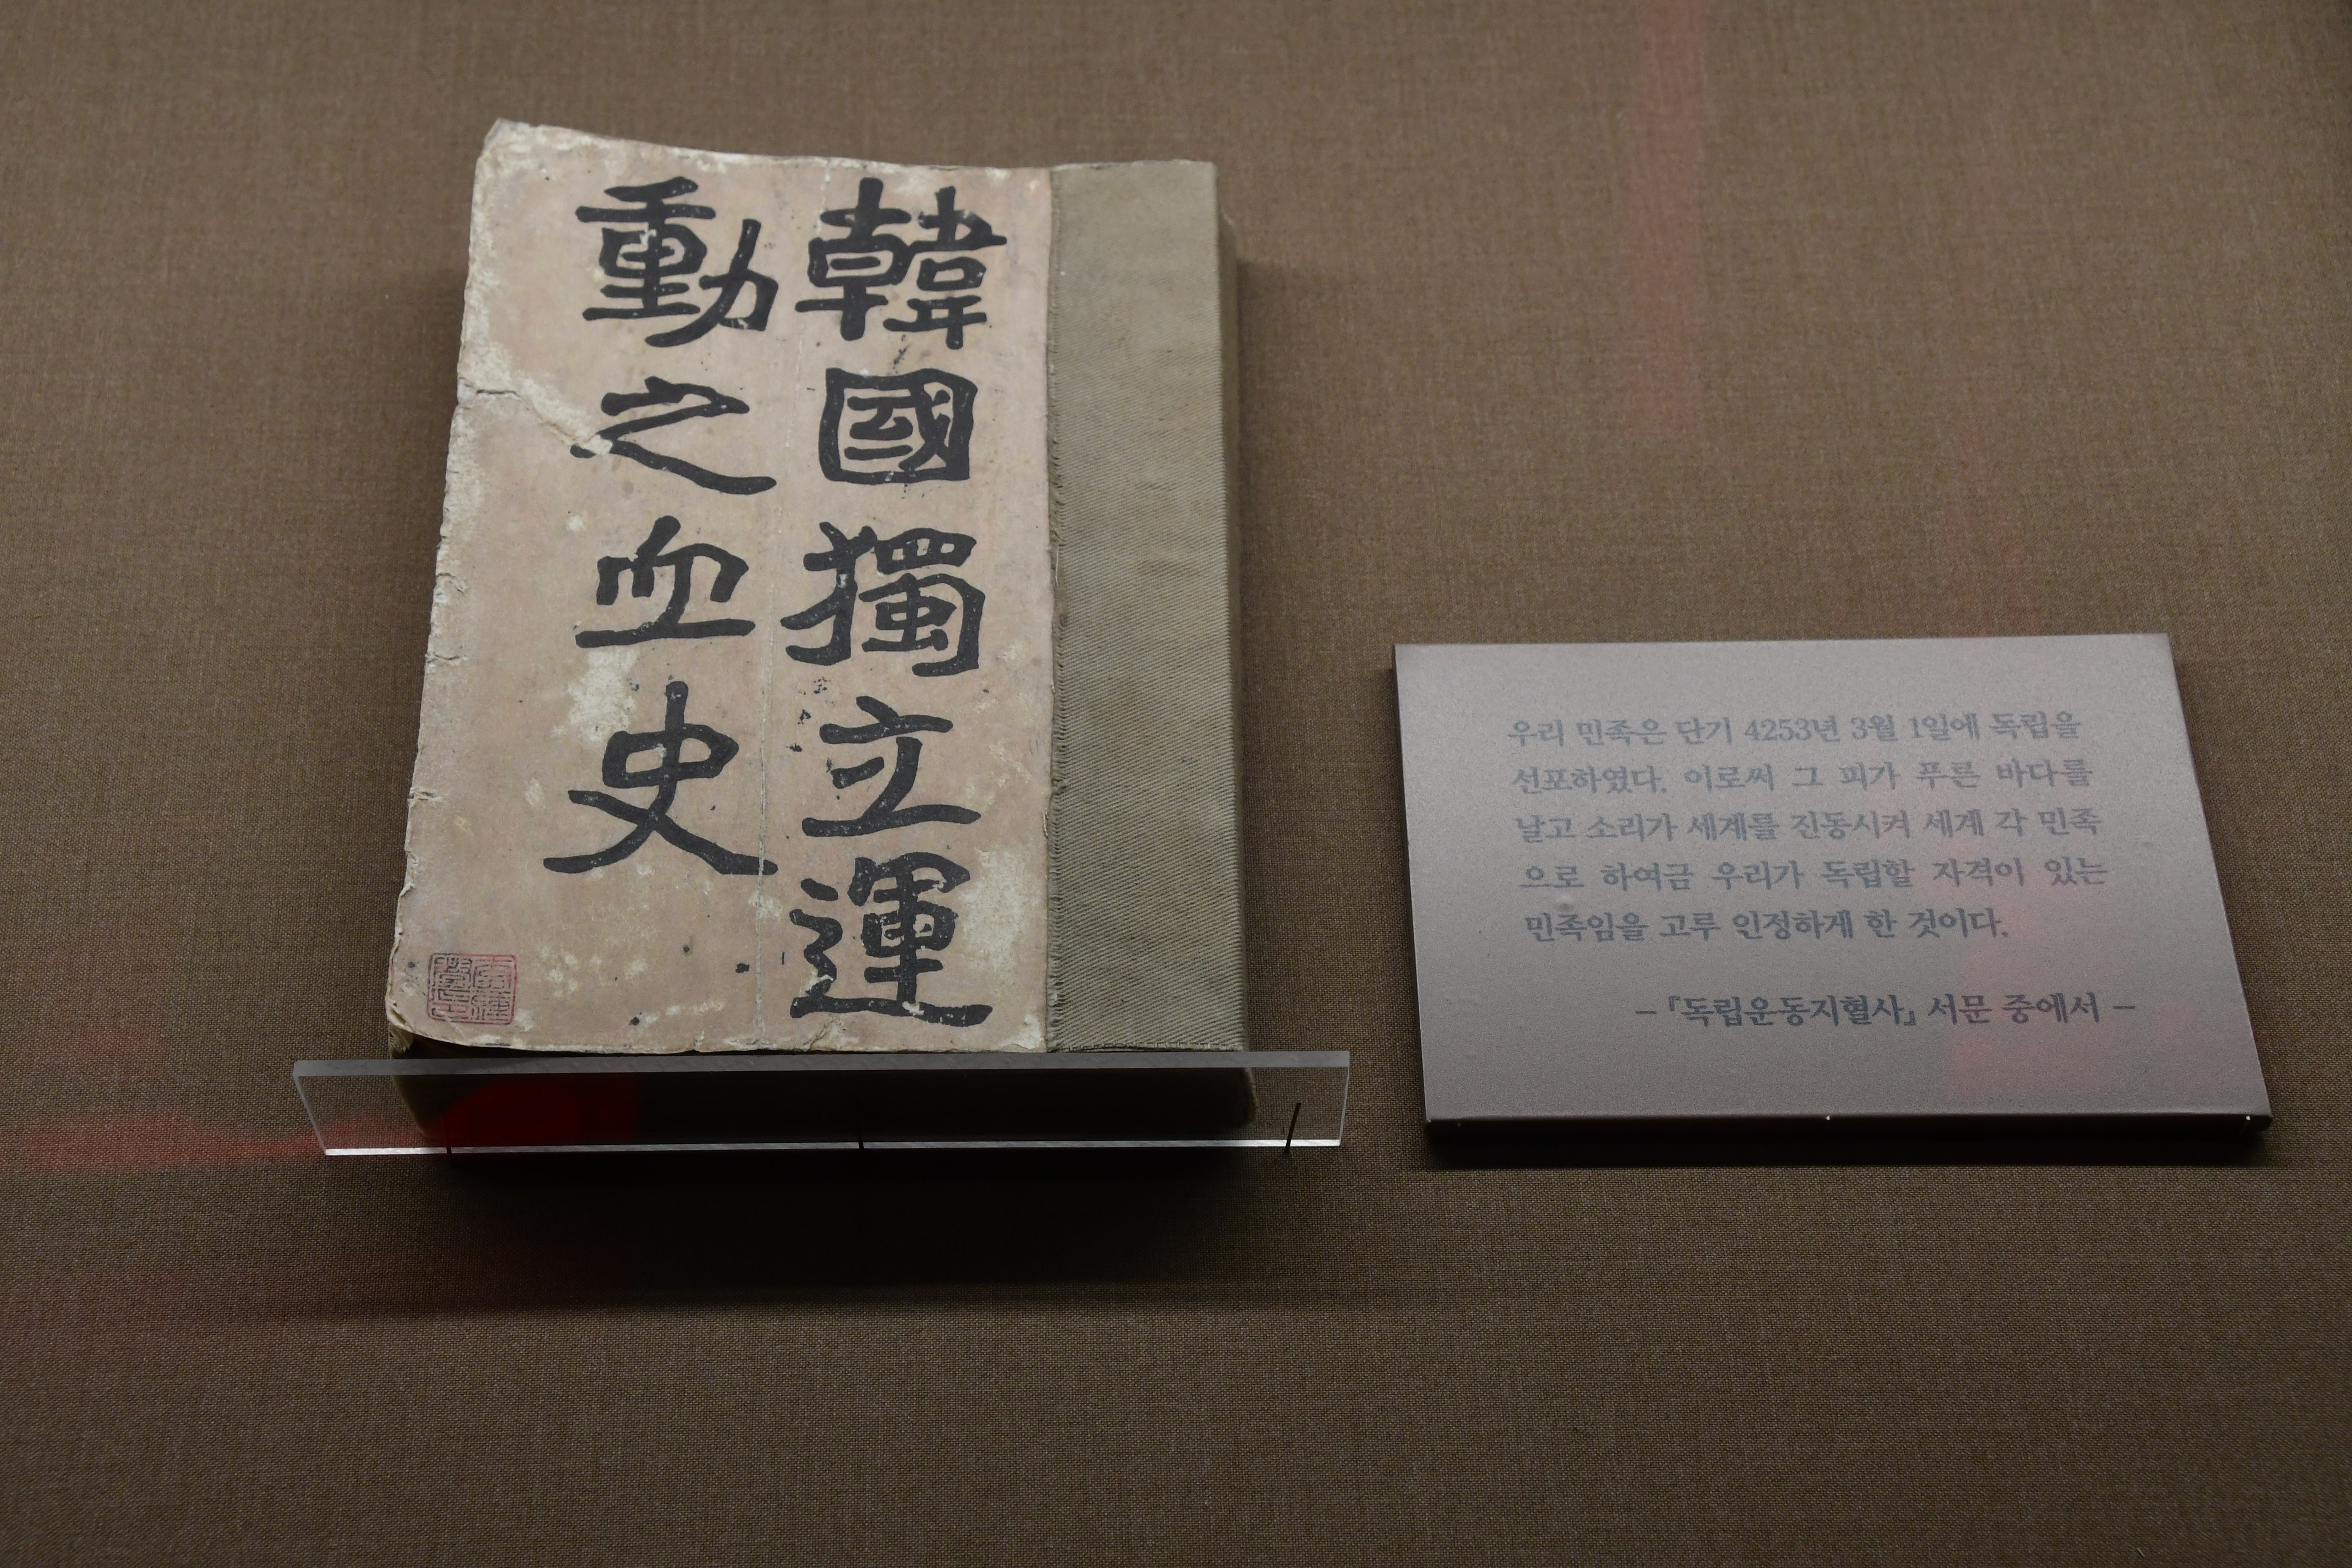 韓國獨立運
動之血史
우리 민족은 단기 4253년 3월 1일에 독립을
선포하였다. 이로써 그 피가 푸른 바다를
날고 소리가 세계를 진동시켜 세계 각 민족
으로 하여금 우리가 독립할 자격이 있는
민족임을 고루 인정하게 한 것이다.
– 『독립운동지혈사』 서문 중에서 –